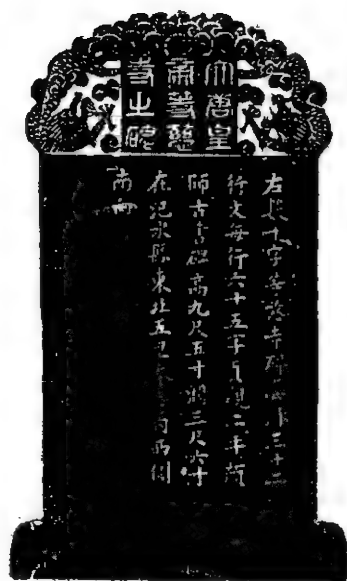 大唐皇
帝等慈
寺之碑
篆九字等慈寺碑三十二
行文每行六十五字貞觀二年顔
師古書碑高九尺五寸濶三尺六寸
在汜水縣東北五里寺內西側
南向